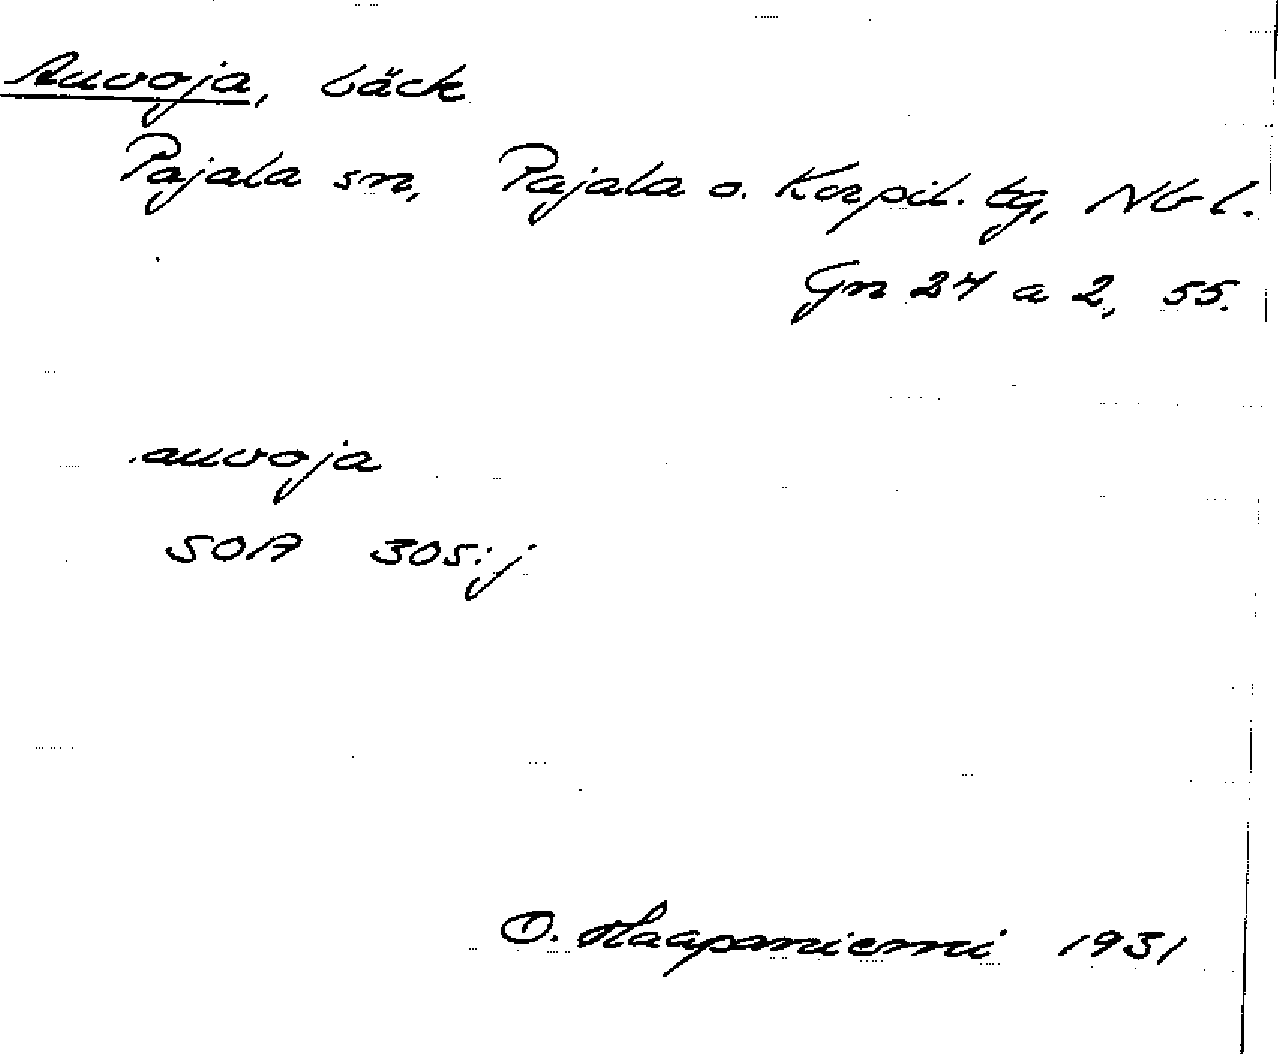 Auvoja, bäck
Pajala sn, Pajala o. Korpil. tg, Nb l.
Gn 24 a 2, 55.
auvoja
SOA 305:j
O. Haapaniemi 1931